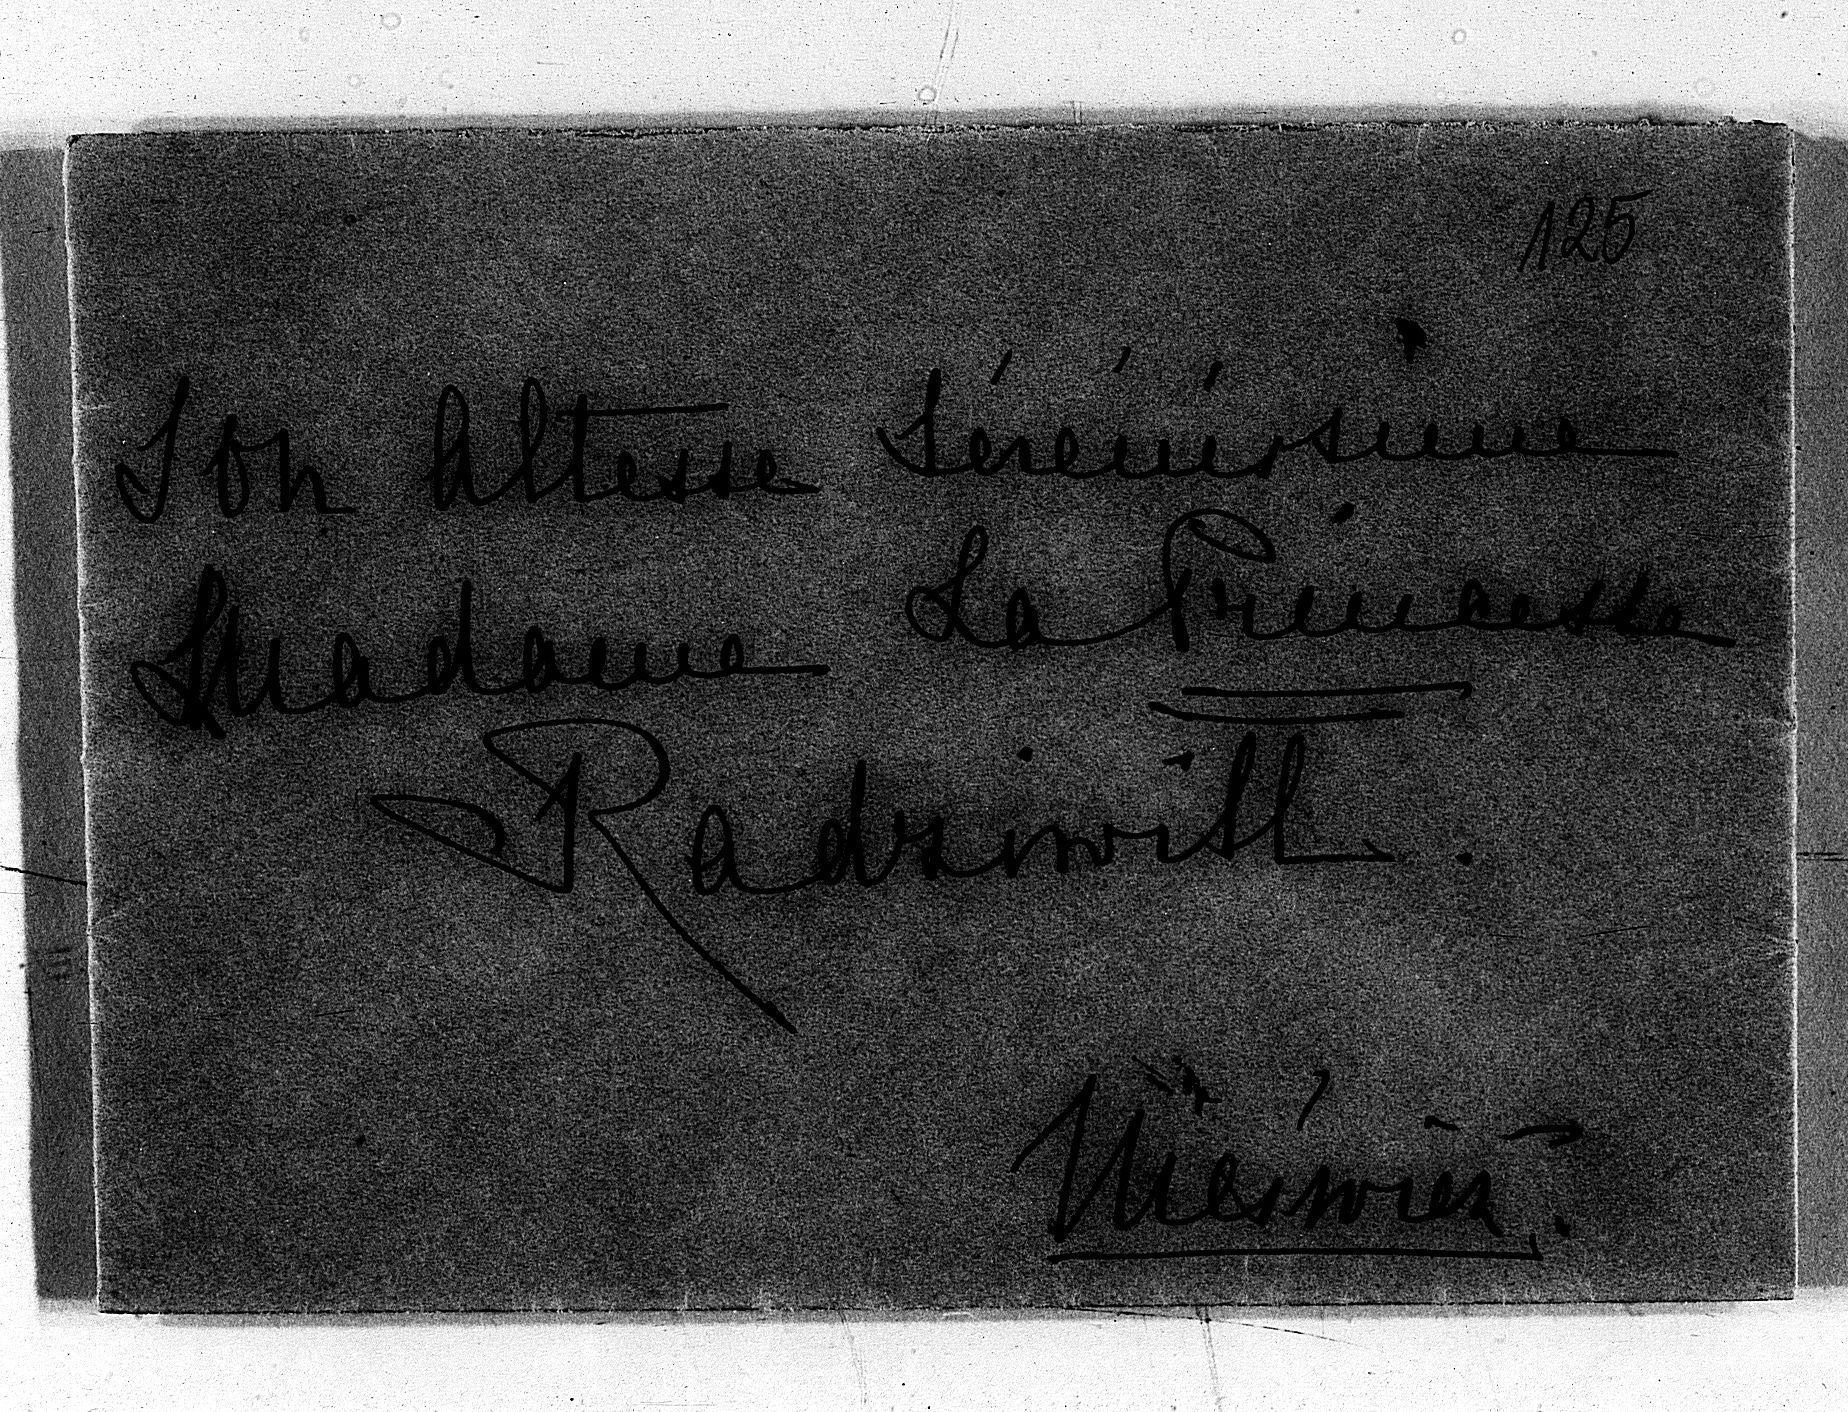 125
Son Altesse Sérénissime
Madame La Princesse
Radziwill.
Nieświez.